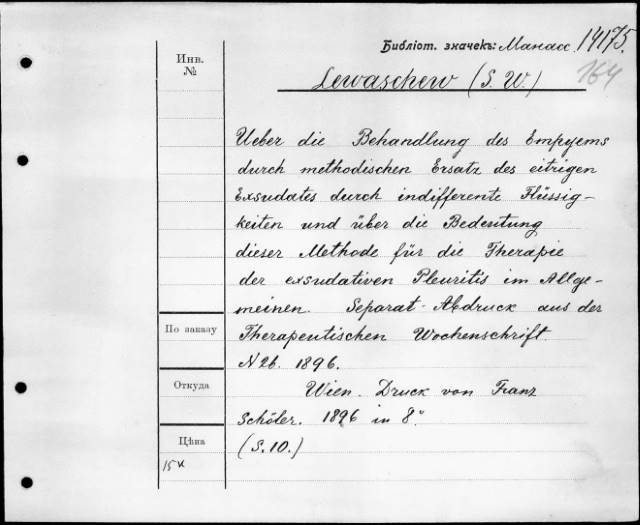 Библіот. значекъ: Манасс. 14175.
164
Инв.
№
Lewaschew (S. W.)
Ueber die Behandlung des Empyems
durch methodischen Ersatz des eitrigen
Exsudates durch indifferente Flüssig-
keiten und über die Bedeutung
dieser Methode für die Therapie
der exsudativen Pleuritis im Allge-
meinen. Separat-Abdruck aus der
По заказу
Therapeutischen Wochenschrift.
N 26. 1896.
Откуда
Wien. Druck von Franz
Schöler. 1896 in 8°
Цѣна
(S. 10.)
15 к